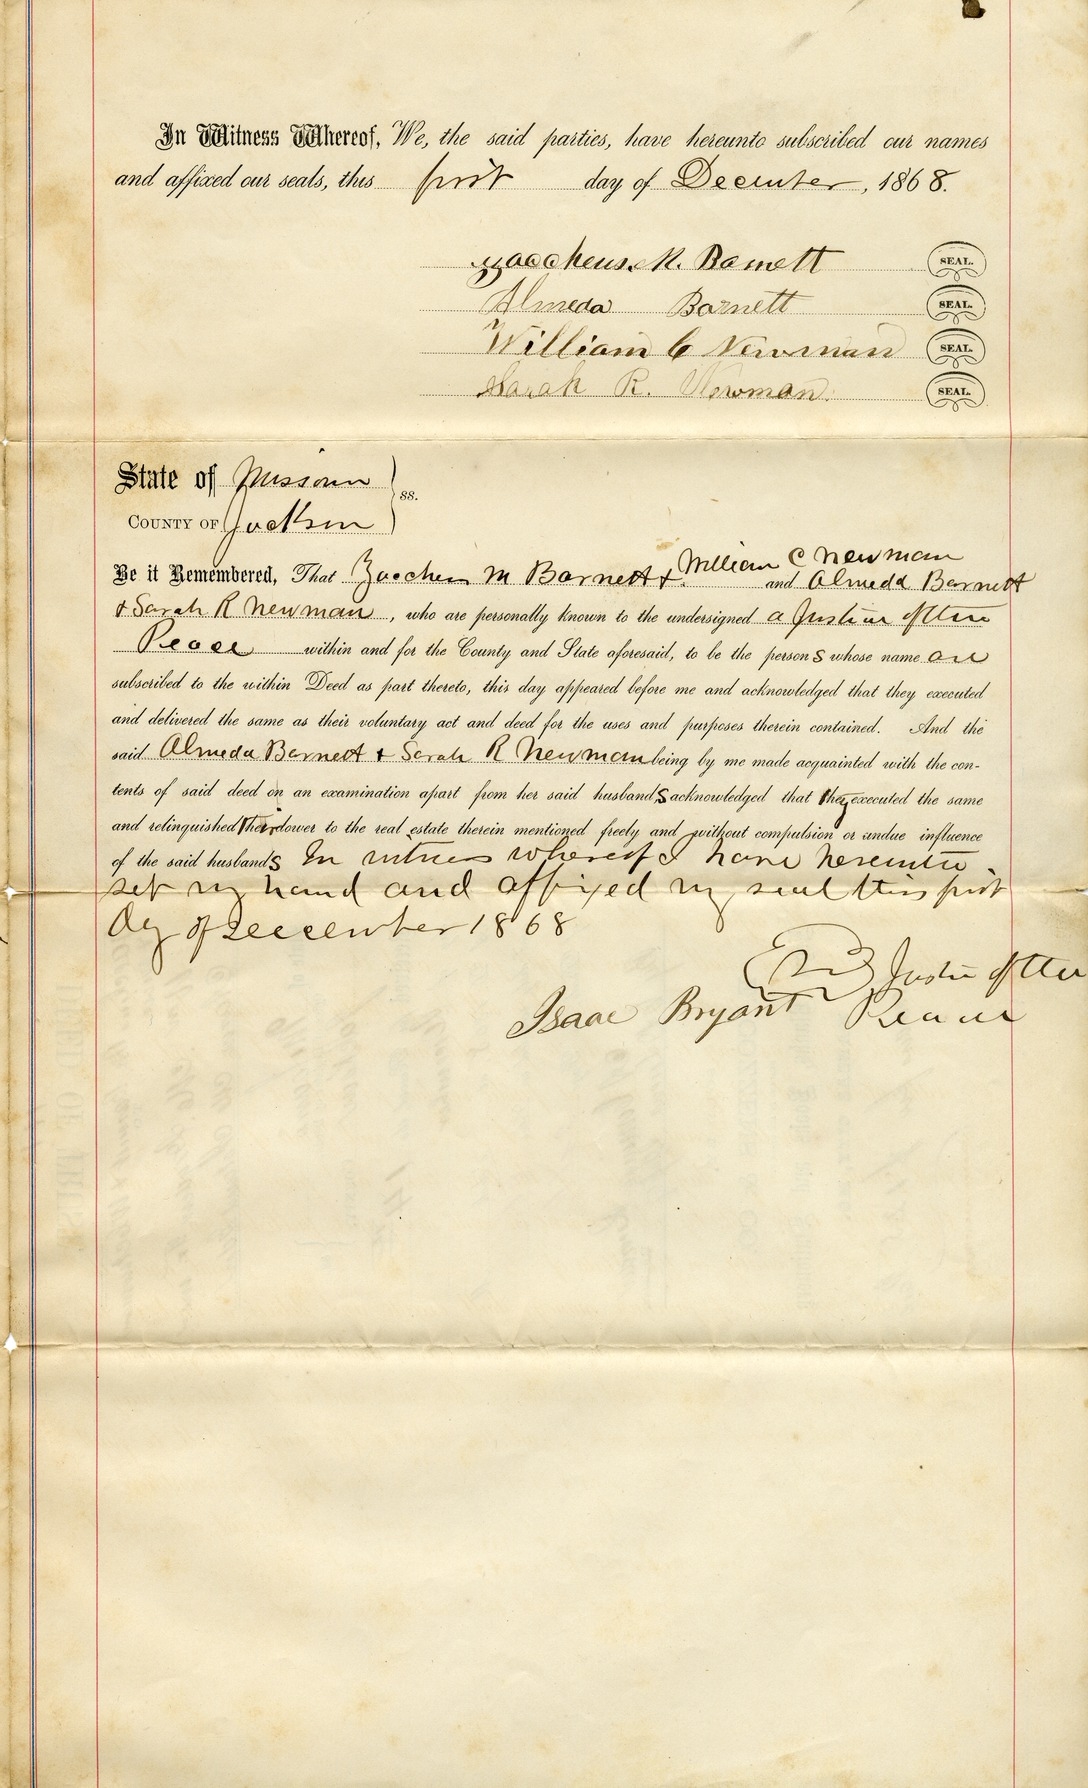 In Witness Whereof, We, the said parties, have hereunto subscribed our names
and affixed our seals, this first day of December, 1868.
Zaccheus M. Barnett SEAL.
Almeda Barnett SEAL.
William C Newman SEAL.
Sarah R. Newman. SEAL.
State of Missouri
COUNTY OF Jackson } ss.
William C Newman
Be it Remembered, That Zaccheus M Barnett & and Almeda Barnett
& Sarah R Newman, who are personally known to the undersigned a Justice of the
Peace within and for the County and State aforesaid, to be the persons whose name are
subscribed to the within Deed as part thereto, this day appeared before me and acknowledged that they executed
and delivered the same as their voluntary act and deed for the uses and purposes therein contained. And the
said Almeda Barnett & Sarah R Newman being by me made acquainted with the con-
tents of said deed on an examination apart from her said husbands acknowledged that they executed the same
and relinquished their dower to the real estate therein mentioned freely and without compulsion or undue influence
of the said husbands In witness whereof I have hereunto
set my hand and affixed my seal this first
day of December 1868
Justice of the
Isaac Bryant Peace